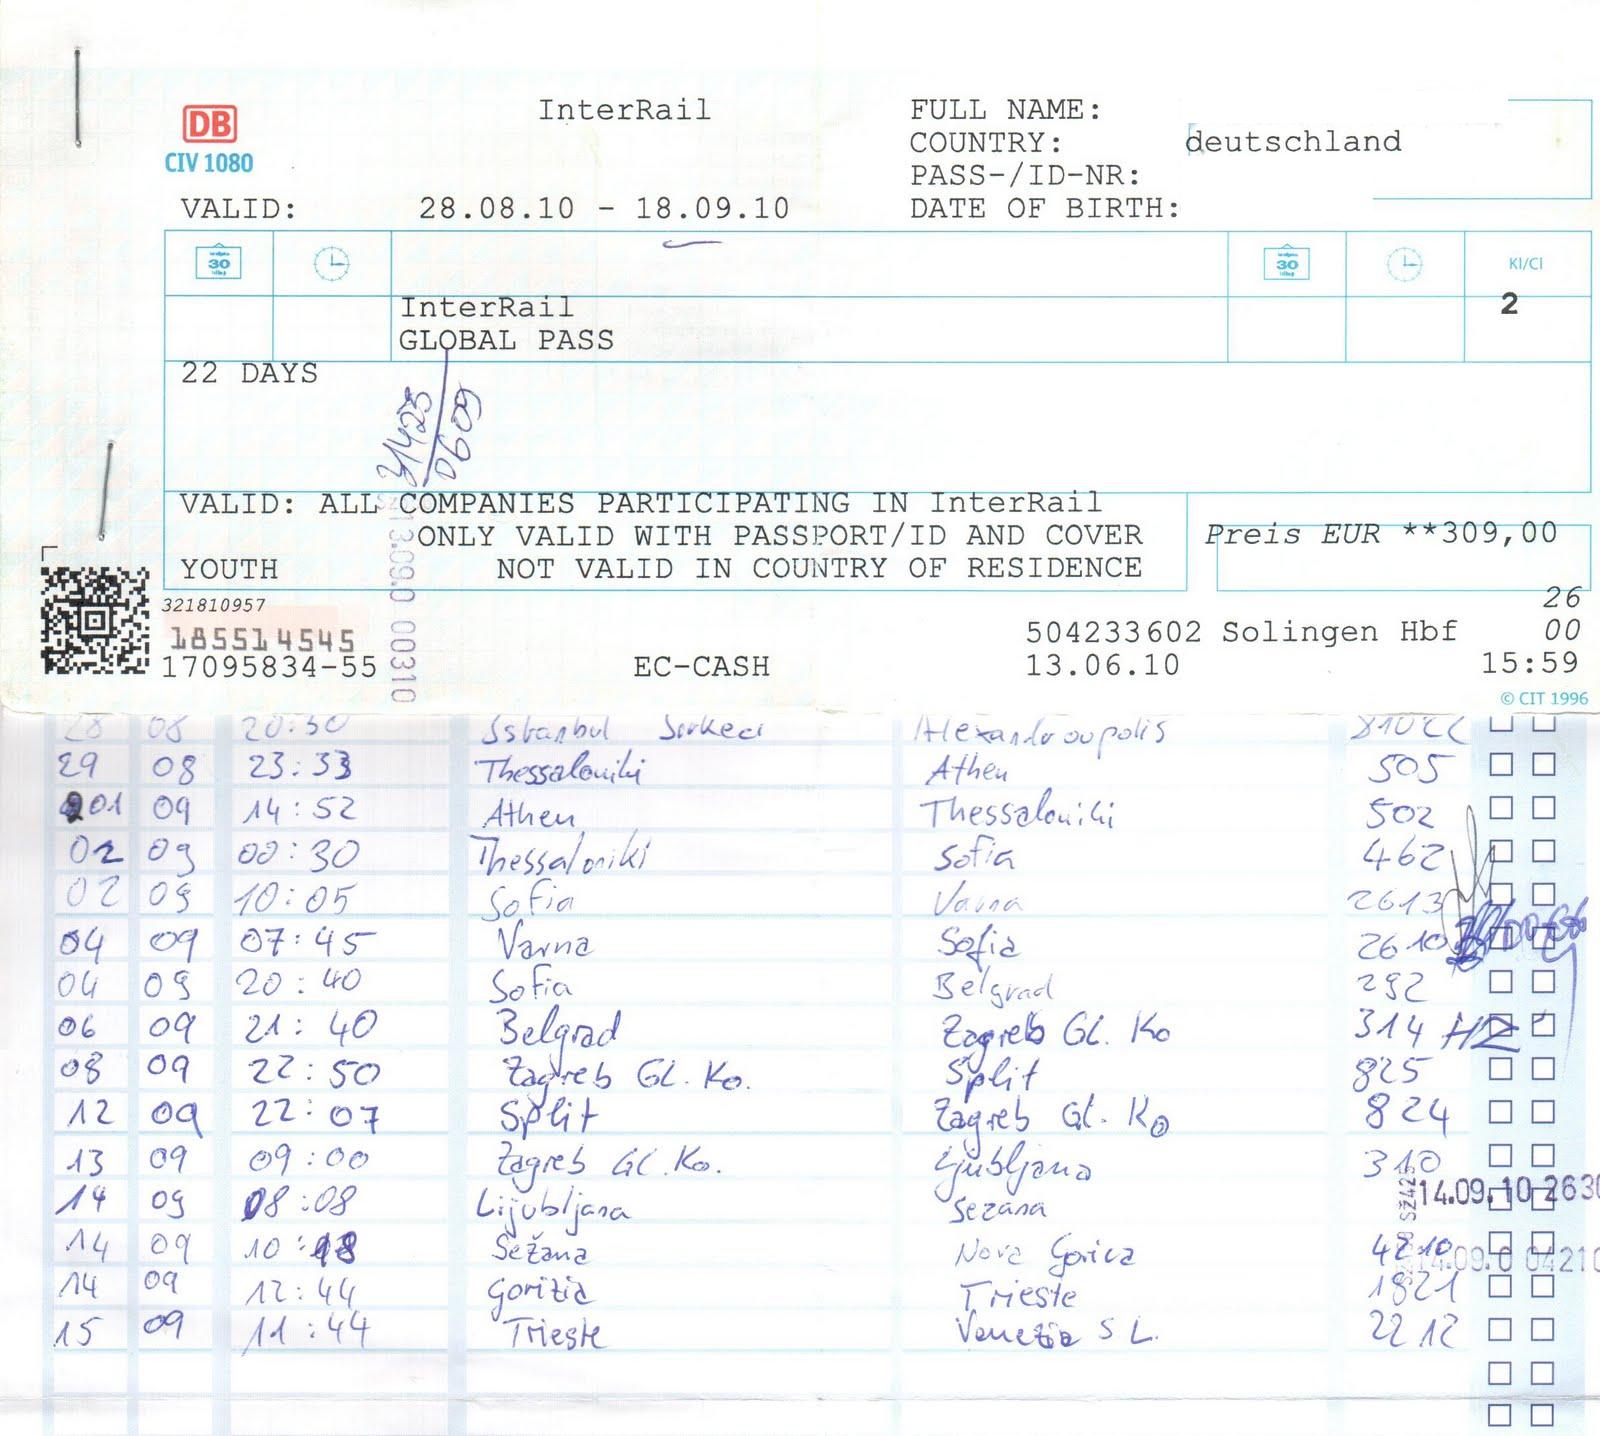 DB InterRail FULL NAME:
CIV 1080 COUNTRY: deutschland
PASS-/ID-NR:
VALID: 28.08.10 - 18.09.10 DATE OF BIRTH:
30 30 Kl/Cl
InterRail 2
GLOBAL PASS
22 DAYS
31423
0609
VALID: ALL COMPANIES PARTICIPATING IN InterRail
ONLY VALID WITH PASSPORT/ID AND COVER Preis EUR **309,00
YOUTH NOT VALID IN COUNTRY OF RESIDENCE
13.09.0 00310
321810957 26
185514545 504233602 Solingen Hbf 00
17095834-55 EC-CASH 13.06.10 15:59
© CIT 1996
28 08 20:30 Istanbul Sirkeci Alexandroupolis
29 08 23:33 Thessaloniki Athen 505
01 09 14:52 Athen Thessaloniki 502
02 09 00:30 Thessaloniki Sofia 462
02 09 10:05 Sofia Varna 2613
04 09 07:45 Varna Sofia 2610
04 09 20:40 Sofia Belgrad 292
06 09 21:40 Belgrad Zagreb Gl. Ko 314 HZ
08 09 22:50 Zagreb Gl. Ko. Split 825
12 09 22:07 Split Zagreb Gl. Ko 824
13 09 09:00 Zagreb Gl. Ko. Ljubljana 310
14.09.10 2630
14 09 08:08 Lijubljana Sezana
14 09 10:18 Sežana Nova Gorica 4210
14.09.0 04210
14 09 12:44 Gorizia Trieste 1821
15 09 11:44 Trieste Venezia S L. 2212